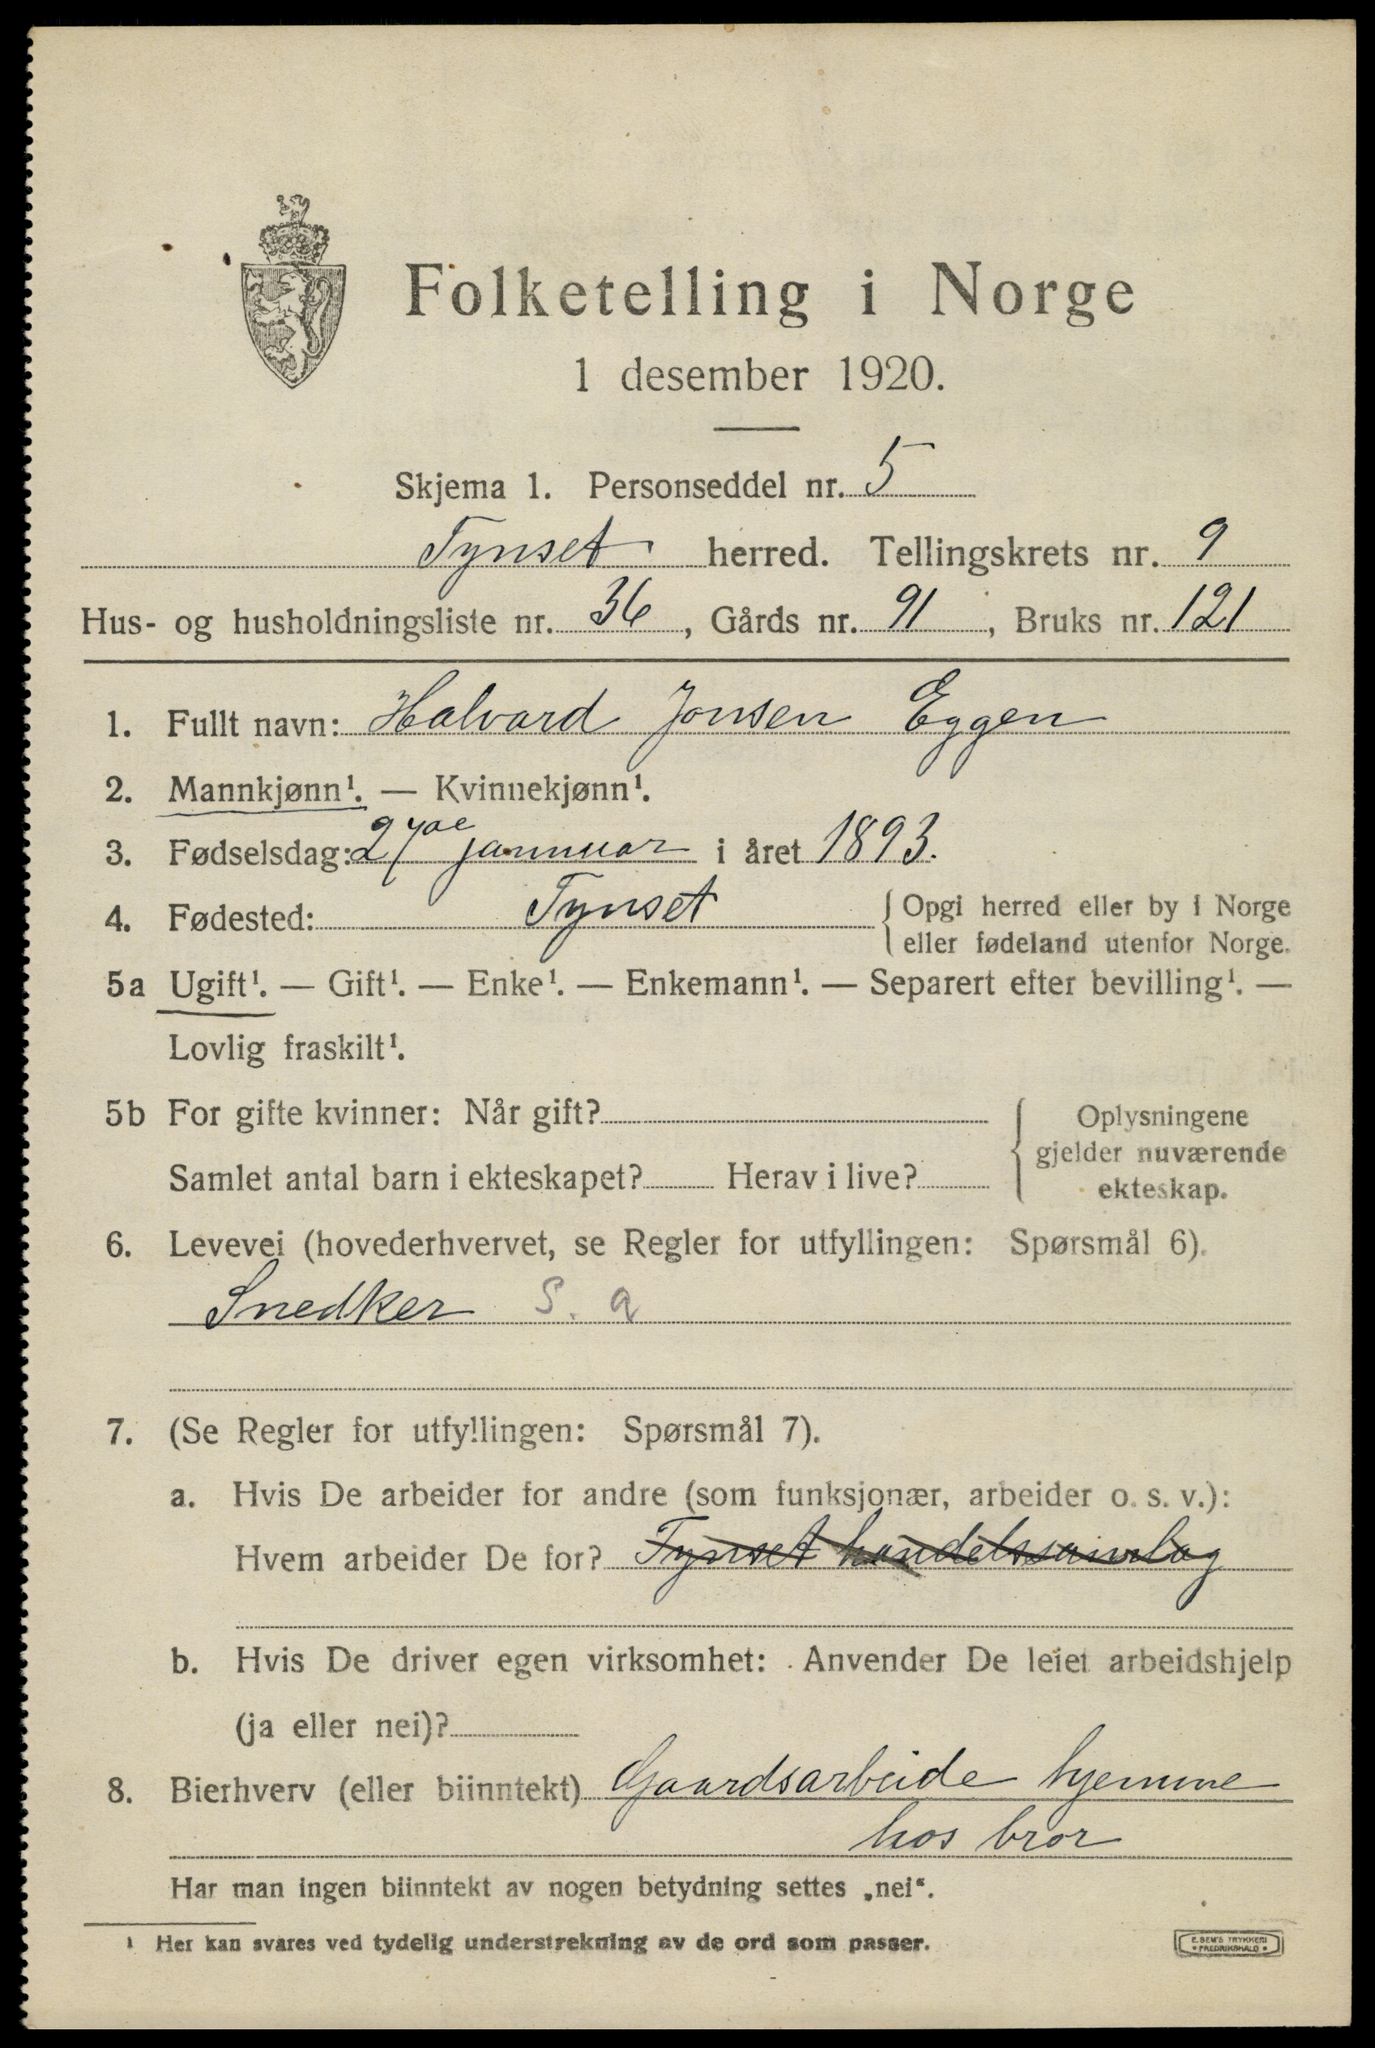 Folketelling i Norge
1 desember 1920.
Skjema 1. Personseddel nr. 5
Tynset herred. Tellingskrets nr. 9
Hus- og husholdningsliste nr. 36, Gårds nr. 91, Bruks nr. 121
1. Fullt navn: Halvard Jonsen Eggen
2. Mannkjønn¹. — Kvinnekjønn¹.
3. Fødselsdag: 27de jannuar i året 1893.
4. Fødested: Tynset { Opgi herred eller by i Norge
eller fødeland utenfor Norge.
5a Ugift¹. — Gift¹. — Enke¹. — Enkemann¹. — Separert efter bevilling¹. —
Lovlig fraskilt¹.
5b For gifte kvinner: Når gift? { Oplysningene
gjelder nuværende
Samlet antal barn i ekteskapet? Herav i live?
ekteskap.
6. Levevei (hovederhvervet, se Regler for utfyllingen: Spørsmål 6).
Snedker S. a
7. (Se Regler for utfyllingen: Spørsmål 7).
a. Hvis De arbeider for andre (som funksjonær, arbeider o. s. v.):
Hvem arbeider De for? Tynset handelssamlag
b. Hvis De driver egen virksomhet: Anvender De leiet arbeidshjelp
(ja eller nei)?
8. Bierhverv (eller biinntekt) Gaardsarbeide hjemme
hos bror
Har man ingen biinntekt av nogen betydning settes „nei“.
¹ Her kan svares ved tydelig understrekning av de ord som passer.
E. SEM'S TRYKKERI
• FREDRIKSHALD •